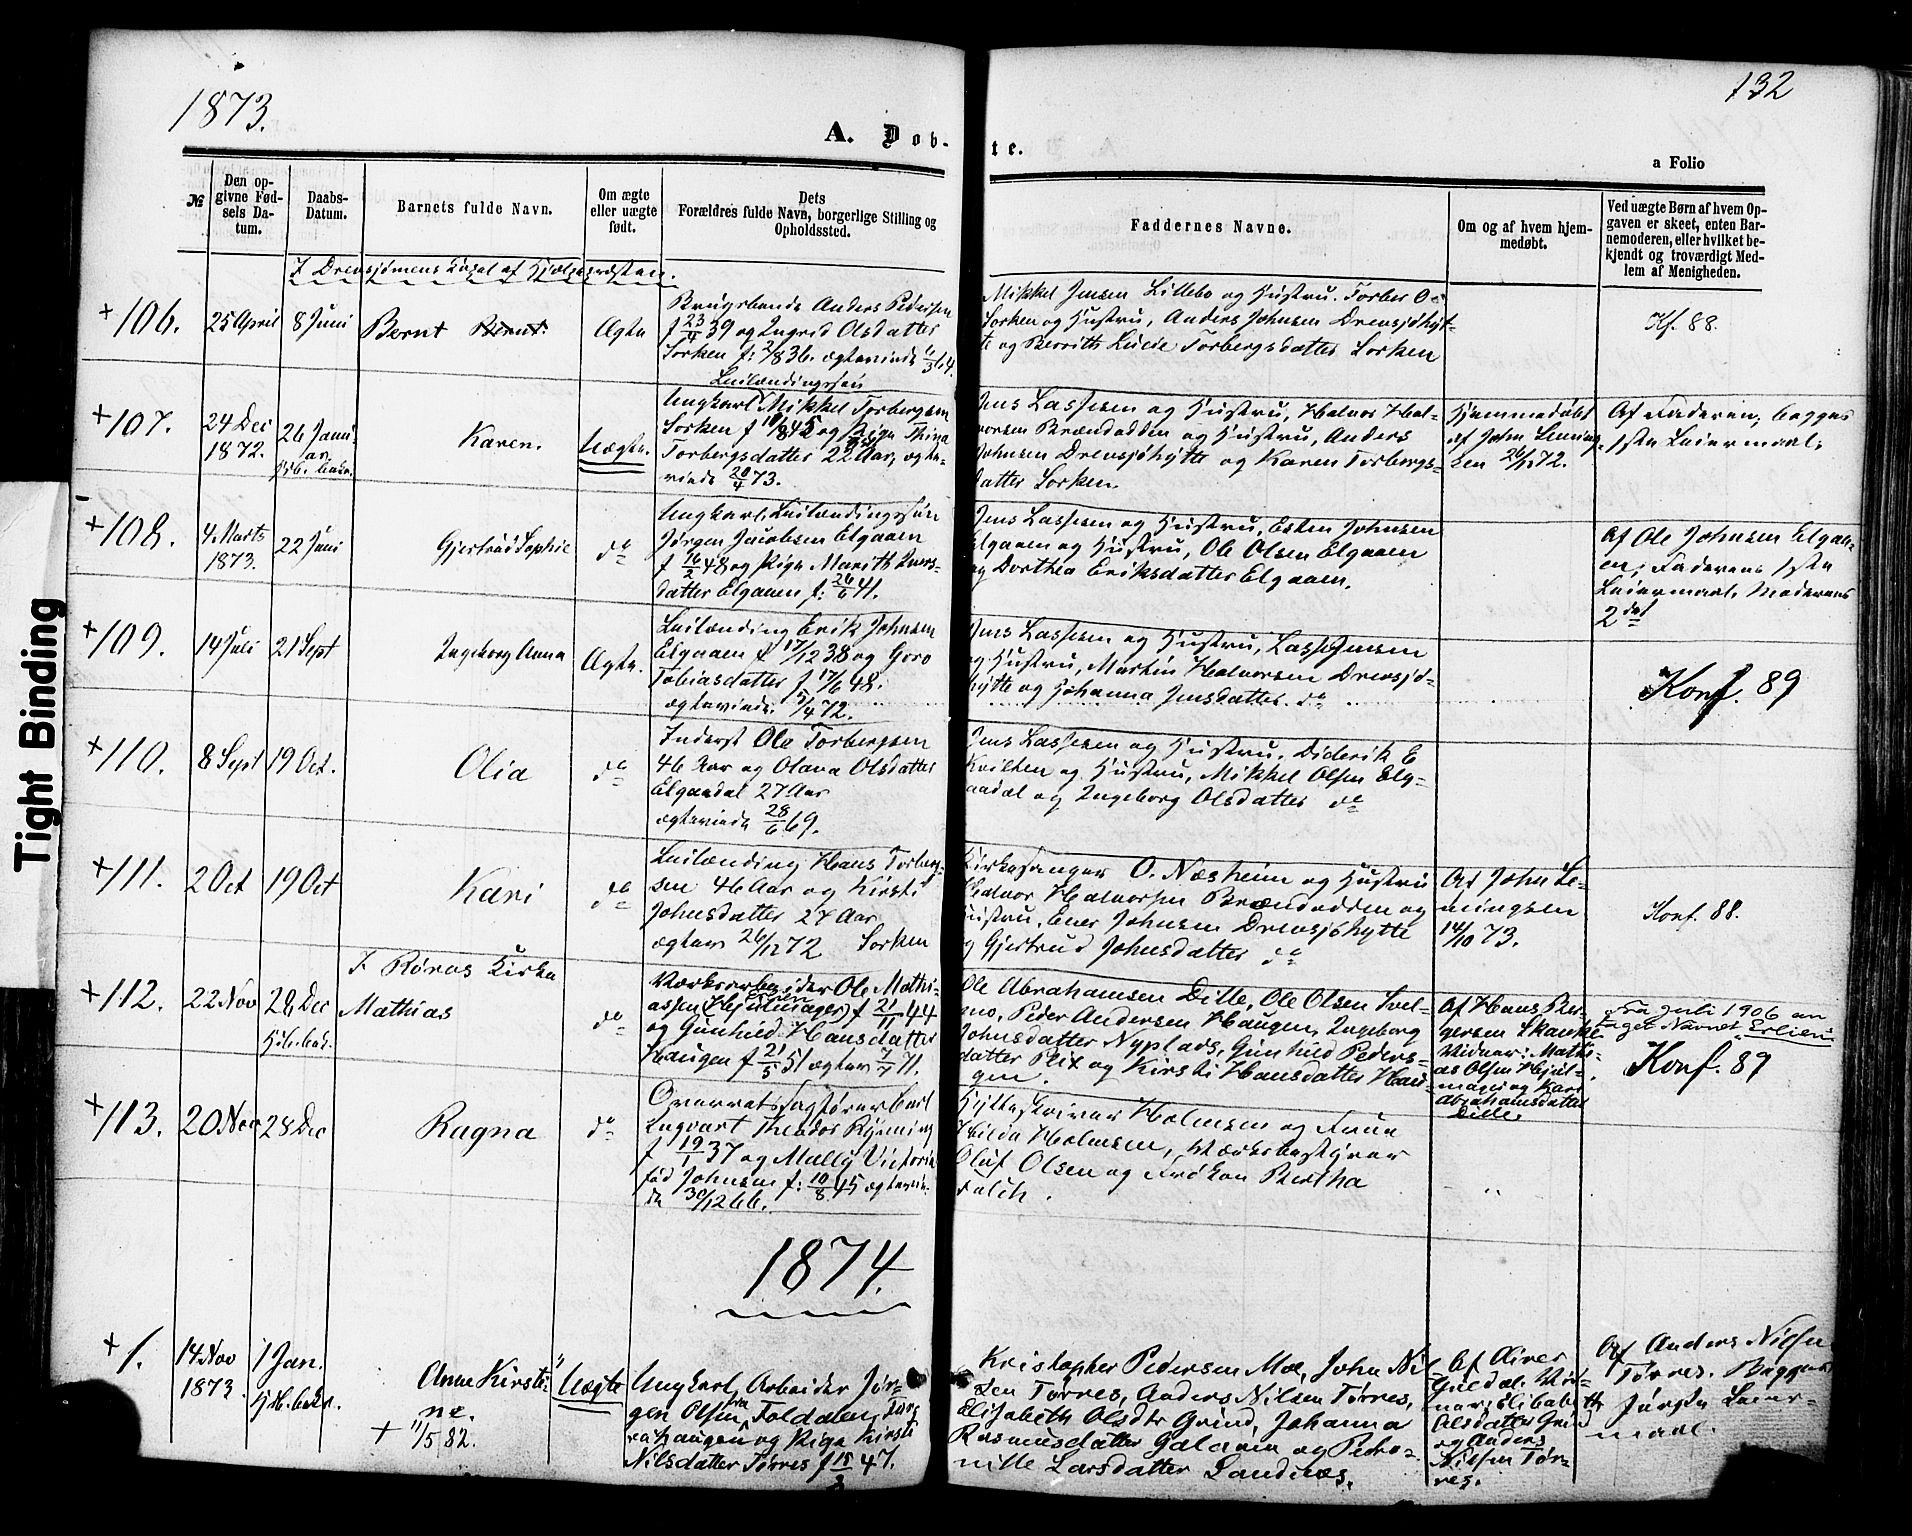 1873.
132
A. Dob-
te.
a Folio
№
Den op-
givne Fød-
sels Da-
tum.
Daabs-
Datum.
Barnets fulde Navn.
Om ægte
eller uægte
født.
Dets
Forældres fulde Navn, borgerlige Stilling og
Opholdssted.
Faddernes Navne.
Om og af hvem hjem-
medøbt.
Ved uægte Børn af hvem Op-
gaven er skeet, enten Bar-
nemoderen, eller hvilket be-
kjendt og troværdigt Med-
lem af Menigheden.
I Drevsjømoens Kapel af Hjælpepræsten.
+106.
25 April
8 Juni
Bernt Bernt.
Ægte
Brugsbonde Anders Pedersen
f 23/4 39 og Ingrid Olsdatter
Sorken f: 2/8 36. ægteviede
Mikkel Jensen Lillebo og Hustru. Torber O-
Sorken og Hustru, Anders Johnsen Drevsjøhyt-
te og Berrith Lucie Torbergsdatter Sorken
Kf. 88.
+107.
24 Dec
1872.
26 Janu-
ar
Karen.
Uægte.
Leilændingssøn
Ungkarl Mikkel Torbergsen
Sorken f og Pige Thina
Torbergsdatter 22 Aar, ægte-
viede 20/4 73.
Jens Lassesen og Hustru, Halvor Hal-
vorsen Brændodden og Hustru, Anders
Johnsen Drevsjøhytte og Karen Torbergs-
datter Sorken.
Hjemmedøbt
af John Leming-
sen 26/12 72.
Af Faderen; begges
1ste Leiermaal.
+108.
4 Marts
1873.
22 Juni
Gjertrud Sophie
do
Ungkarl, Leilændingssøn
Jørgen Jacobsen Elgaaen
f 16/2 48 og Pige Marith Ivers-
datter Elgaaen f: 26/6 41.
Jens Lassesen og Hustru, Esten Johnsen
Elgaaen og Hustru, Ole Olsen Elgaaen
og Dorthea Eriksdatter Elgaaen.
Af Ole Johnsen Elgaa-
en; Faderens 1ste
Leiermaal, Moderens
2det
+109.
14 Juli
21 Sept
Ingeborg Anna
Ægte.
Leilænding Erik Johnsen
Elgaaen f 17/12 38 og Goro
Tobiasdatter f 17/6 48.
ægteviede 5/4 72.
Jens Lassesen og Hustru, Lasse Jensen
og Hustru, Martin Halvorsen Drevsjø-
hytte og Johanna Jensdatter do
Konf. 89
+110.
8 Sept
19 Oct.
Olia
do
Inderst Ole Torbergsen
46 Aar og Olava Olsdatter
Elgaadal 27 Aar
ægteviede 28/6 69.
Jens Lassesen og Hustru, Diderik E
Kvilten og Hustru, Mikkel Olsen Elg-
aadal og Ingeborg Olsdatter do
+111.
2 Oct
19 Oct
Kari
do
Leilænding Hans Torberg-
sen 46 Aar og Kirsti
Johnsdatter 27 Aar
ægtev 26/12 72 Sorken
Kirkesanger O. Næsheim og Hustru
Halvor Halvorsen Brændodden og
Hustru, Ener Johnsen Drevsjøhytte
og Gjertrud Johnsdatter do
Af John Le-
mingsen
14/10 73.
Konf. 88.
I Røros Kirke
+112.
22 Nov
28 Dec
Hjb. bekr.
Mathias
do
Værksarbeider Ole Mathi-
assen (Hjulmager) f 21/11 44
og Gunhild Hansdatter
Haugen f 21/5 51 ægtev 7/7 71.
Ole Abrahamsen Dille, Ole Olsen Tvel-
mo, Peder Andersen Haugen, Ingeborg
Johnsdatter Nyplads, Gunhild Peders-
datter Plix og Kirsti Hansdatter Hau-
gen.
Af Hans Ber-
gersen Skanke
Vidner: Mathi-
as Olsen Hjul-
mager og Kari
Abrahamsdatter
Dille.
Fra Juli 1906 an-
taget Navnet Erlien
Konf. 89
+113.
20 Nov
28 Dec
Ragna
do
Overretssagfører Carl
Ingvart Theodor Ryeming
f 19/1 37 og Mally Victoria
fød Johnsen f: 10/8 45 ægtevie-
de 30/12 66.
Hytteskriver Holmsen og Frue
Hilda Holmsen, Værksbestyrer
Oluf Olsen og Frøken Bertha
Falch.
"
1874.
+1.
14 Nov
1873.
1 Jan.
Hjb. bekr.
Anne Kirsti-
ne.
+ 11/5 82.
Uægte
Ungkarl, Arbeider Jør-
gen Olsen fra Foldalen,
haugen og Pige Kirsti
Nilsdatter Tørres f 15/3 47.
Kristopher Pedersen Moe, John Nil-
sen Tørres, Anders Nilsen Tørres,
Elisabeth Olsdtr Grind, Johanna
Rasmusdatter Galaaen og Pero-
nille Larsdatter Sandnæs.
Af Siver
Guldal. Vid-
ner: Elisabeth
Olsdatter Grind
og Anders
Nilsen Tør-
res.
Af Anders Nilsen
Tørres. Begges
første Leier-
maal.
Tight Binding